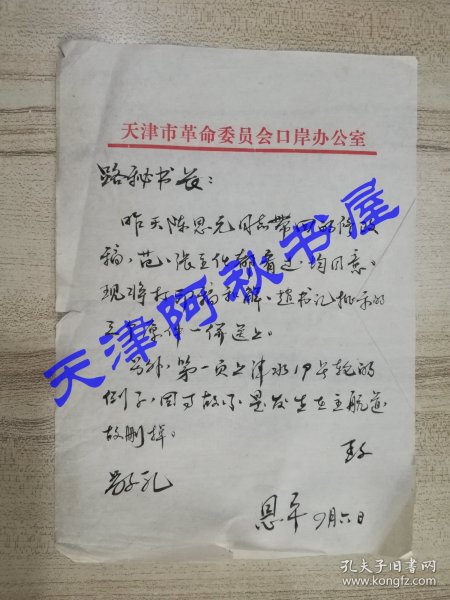 天津市革命委员会口岸办公室
路秘书长：
昨天陈思元同志带回的修改
稿，范、张主任都看过，均同意。
现将打印稿和解、赵书记批示的
文件原件一併送上。
另外，第一页上津水19号轮的
例子，因事故不是发生在主航道
故删掉。
敬礼
恩平 9月六日
天津阿秋书屋
孔夫子旧书网
www.kongfz.com